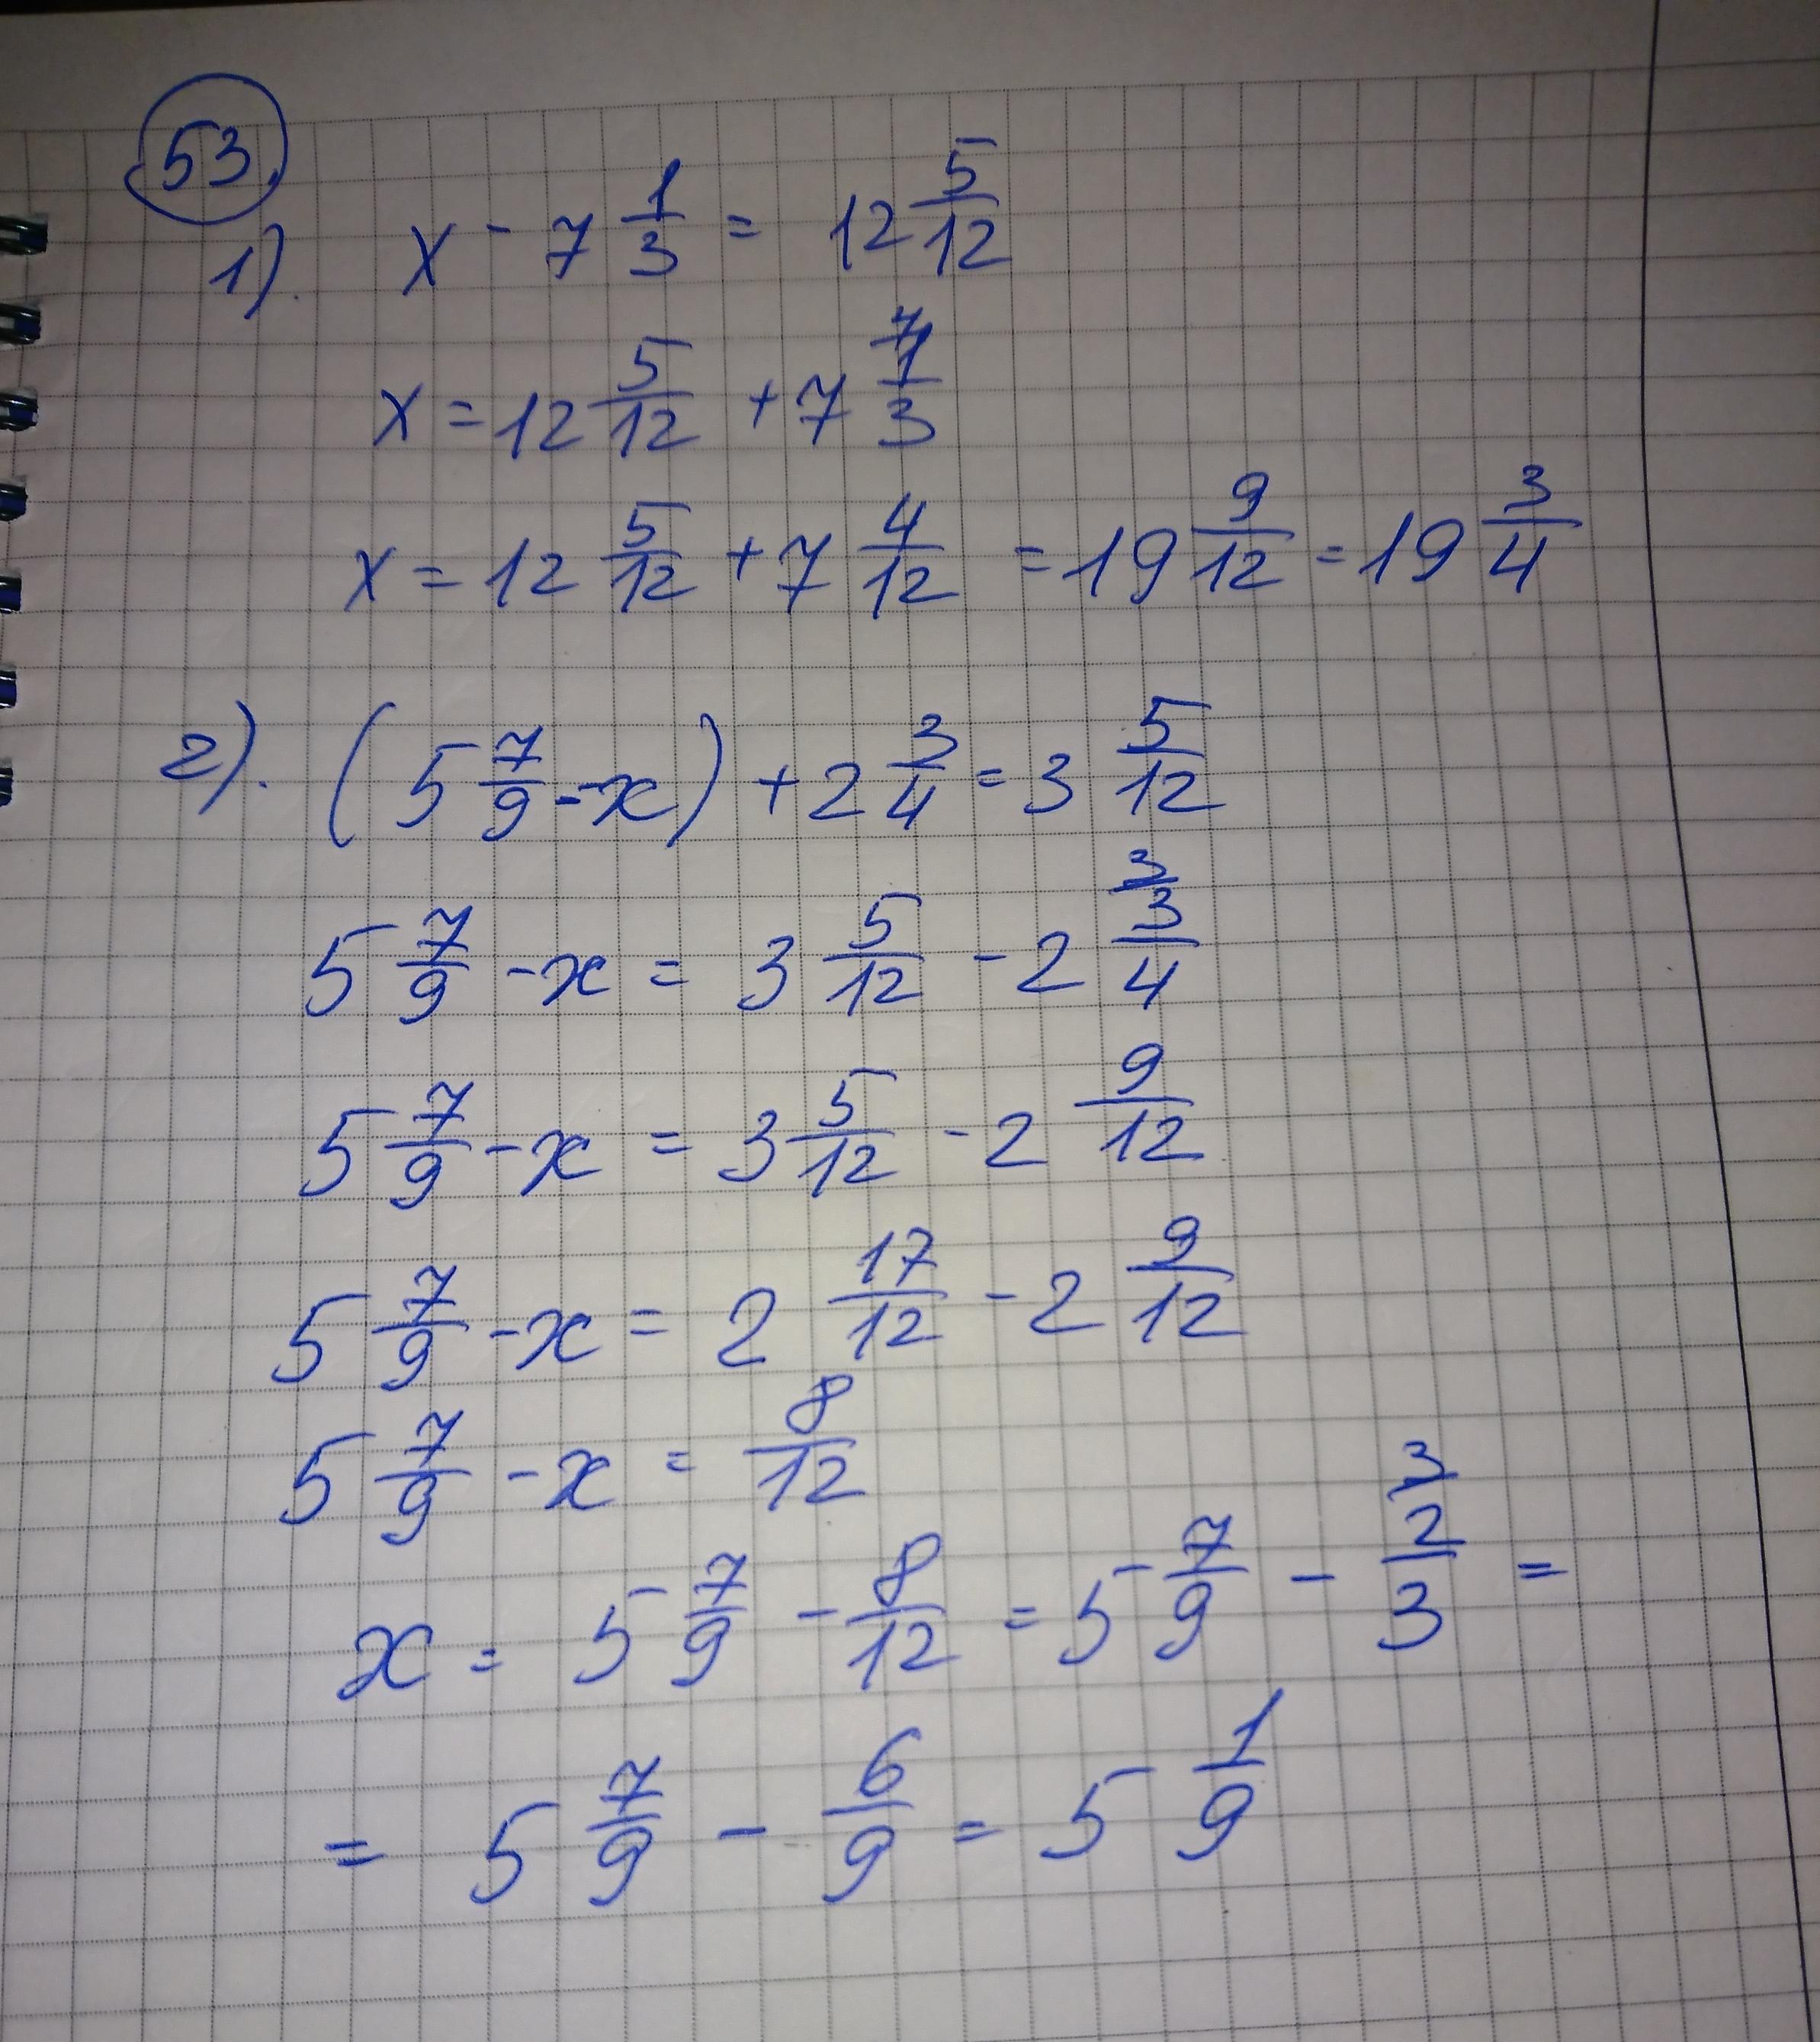 53
1). x - 7 1/3 = 12 5/12
x = 12 5/12 + 7 1/3
x = 12 5/12 + 7 4/12 = 19 9/12 = 19 3/4
2). (5 7/9 - x) + 2 3/4 = 3 5/12
5 7/9 - x = 3 5/12 - 2 3/4
5 7/9 - x = 3 5/12 - 2 9/12
5 7/9 - x = 2 17/12 - 2 9/12
5 7/9 - x = 8/12
x = 5 7/9 - 8/12 = 5 7/9 - 2/3 =
= 5 7/9 - 6/9 = 5 1/9